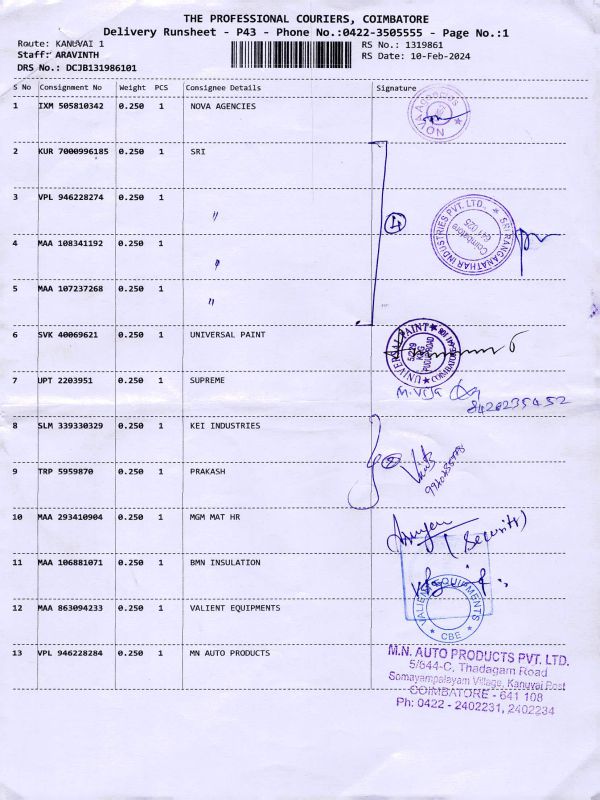 THE PROFESSIONAL COURIERS, COIMBATORE
Delivery Runsheet - P43 - Phone No.:0422-3505555 - Page No.:1
Route: KANUVAI 1
RS No.: 1319861
Staff: ARAVINTH
RS Date: 10-Feb-2024
DRS No.: DCJB131986101
S No Consignment No Weight PCS Consignee Details Signature
1 IXM 505810342 0.250 1 NOVA AGENCIES
NOVA Agencies
2 KUR 7000996185 0.250 1 SRI
3 VPL 946228274 0.250 1 "
4
SRI RANGANATHAR INDUSTRIES PVT. LTD.
Coimbatore
641 025
4 MAA 108341192 0.250 1 "
5 MAA 107237268 0.250 1 "
6 SVK 40069621 0.250 1 UNIVERSAL PAINT
UNIVERSAL PAINT
COIMBATORE
7 UPT 2203951 0.250 1 SUPREME
8420235452
8 SLM 339330329 0.250 1 KEI INDUSTRIES
2
9 TRP 5959870 0.250 1 PRAKASH
10 MAA 293410904 0.250 1 MGM MAT HR
(Security)
11 MAA 106881071 0.250 1 BMN INSULATION
12 MAA 863094233 0.250 1 VALIENT EQUIPMENTS
VALIENT EQUIPMENTS
CBE
13 VPL 946228284 0.250 1 MN AUTO PRODUCTS
M.N. AUTO PRODUCTS PVT. LTD.
5/644-C, Thadagam Road
Somayampalayam Village, Kanuvai Post
COIMBATORE - 641 108
Ph: 0422 - 2402231, 2402234